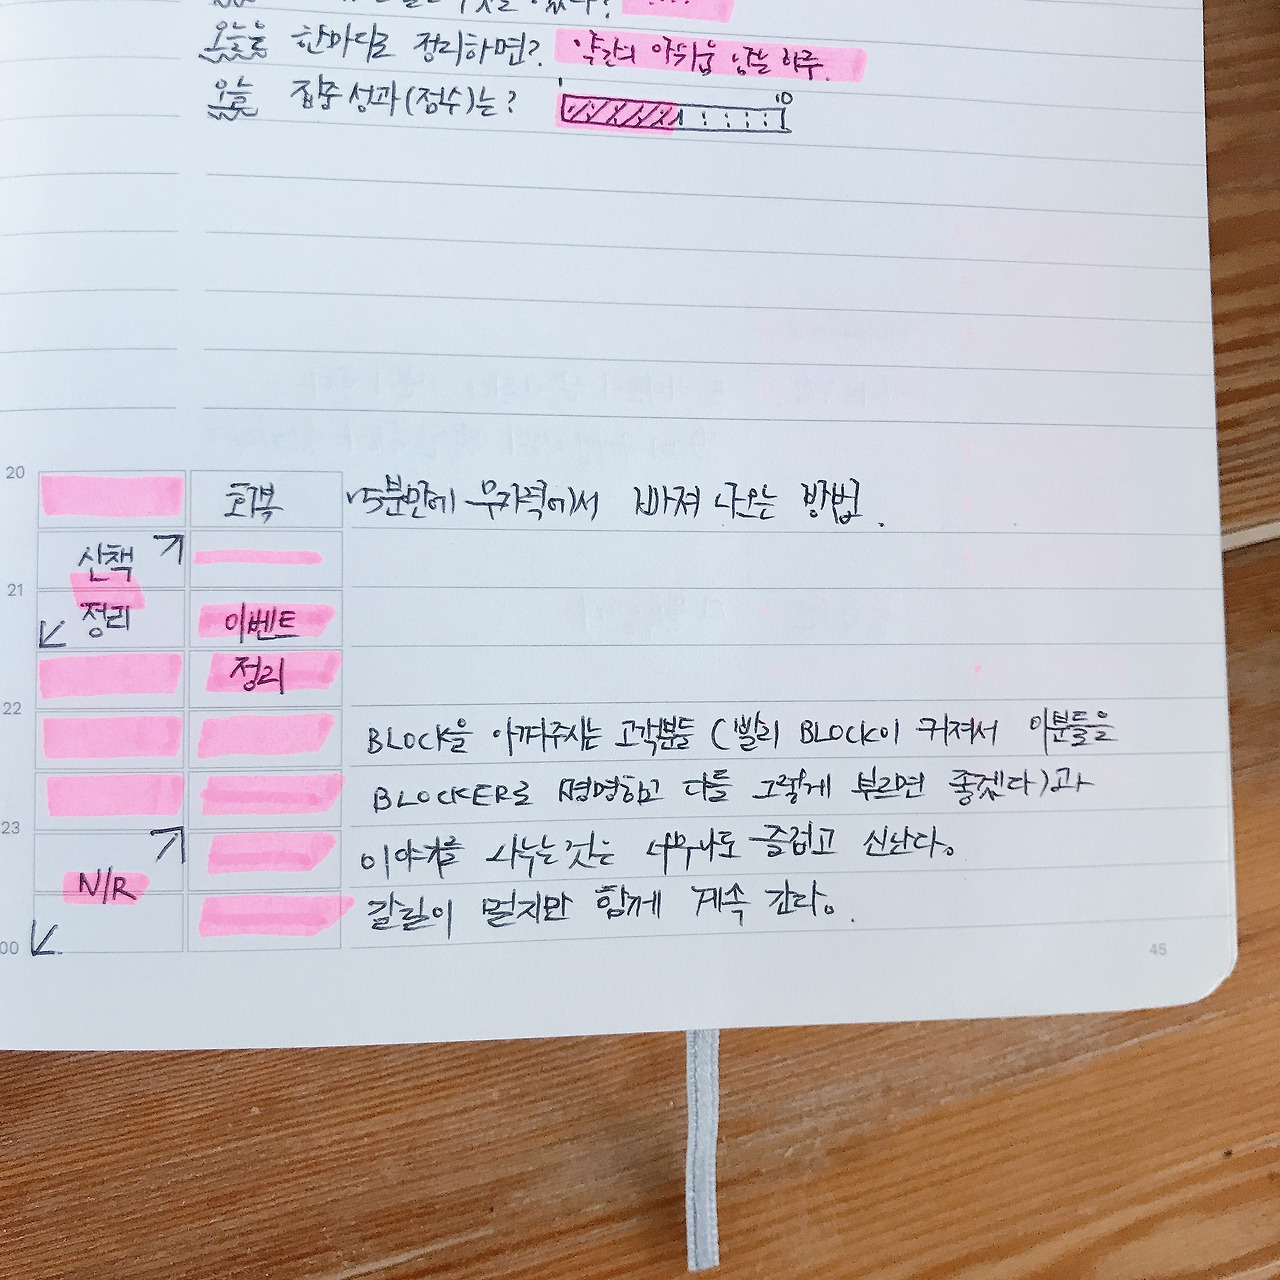 오늘을 한마디로 정리하면? 약간의 아쉬움 남는 하루.
오늘 집중 성과(점수)는? 1 10
20 회복 15분만에 무기력에서 빠져 나오는 방법.
산책
21
정리 이벤트
정리
22
BLOCK을 아껴주시는 고객분들 (빨리 BLOCK이 커져서 이분들을
BLOCKER로 명명하고 다들 그렇게 부르면 좋겠다)과
23
이야기를 나누는 것은 너무나도 즐겁고 신난다.
N/R 갈길이 멀지만 함께 계속 간다.
00
45